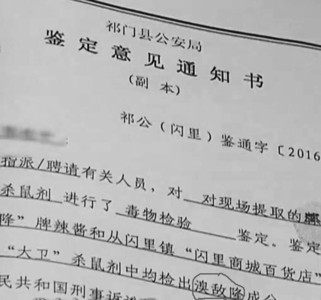 祁门县公安局
鉴定意见通知书
(副本)
祁公(闪里)鉴通字〔2016
指派/聘请有关人员,对 对现场提取的
杀鼠剂 进行了 毒物检验 鉴定。鉴定
隆”牌辣酱和从闪里镇“闪里商城百货店”
“大卫”杀鼠剂中均检出溴敌隆成
民共和国刑事诉讼